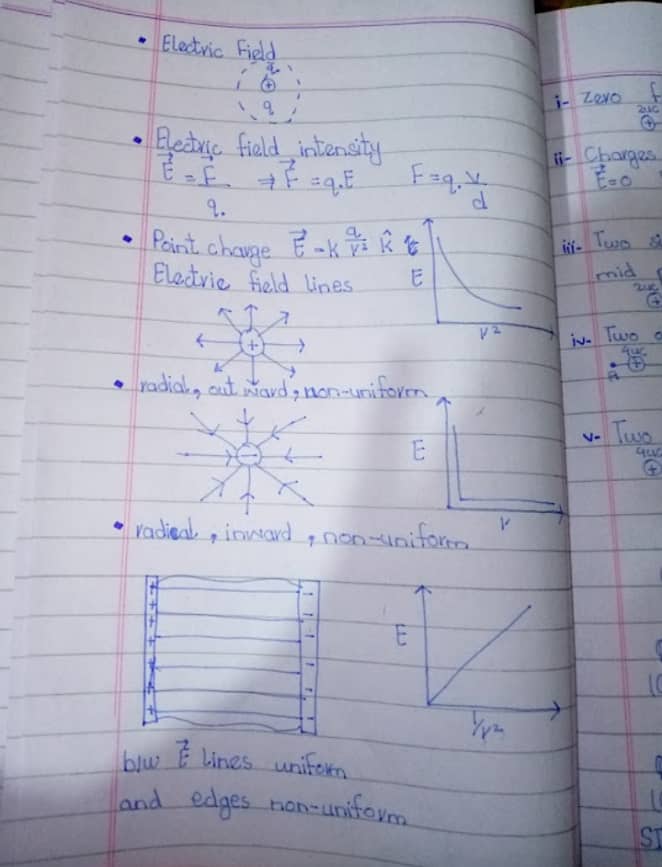 • Electric Field
q.
+
q
• Electric field intensity
E = F/q. ⇒ F = q.E F = q.V/d
• Point charge E = K q/r² r̂
E
r²
Electric field lines
+
• radial, out ward, non-uniform
−
E
r
• radical, inward, non-uniform
+ + + + + + +
− − − − − − −
E
1/r²
b/w E lines uniform
and edges non-uniform
i- Zero f
2uc
+
ii- Charges
E=0
iii- Two
mid
2uc
+
iv- Two
4uc
+
A
v- Two
4uc
+